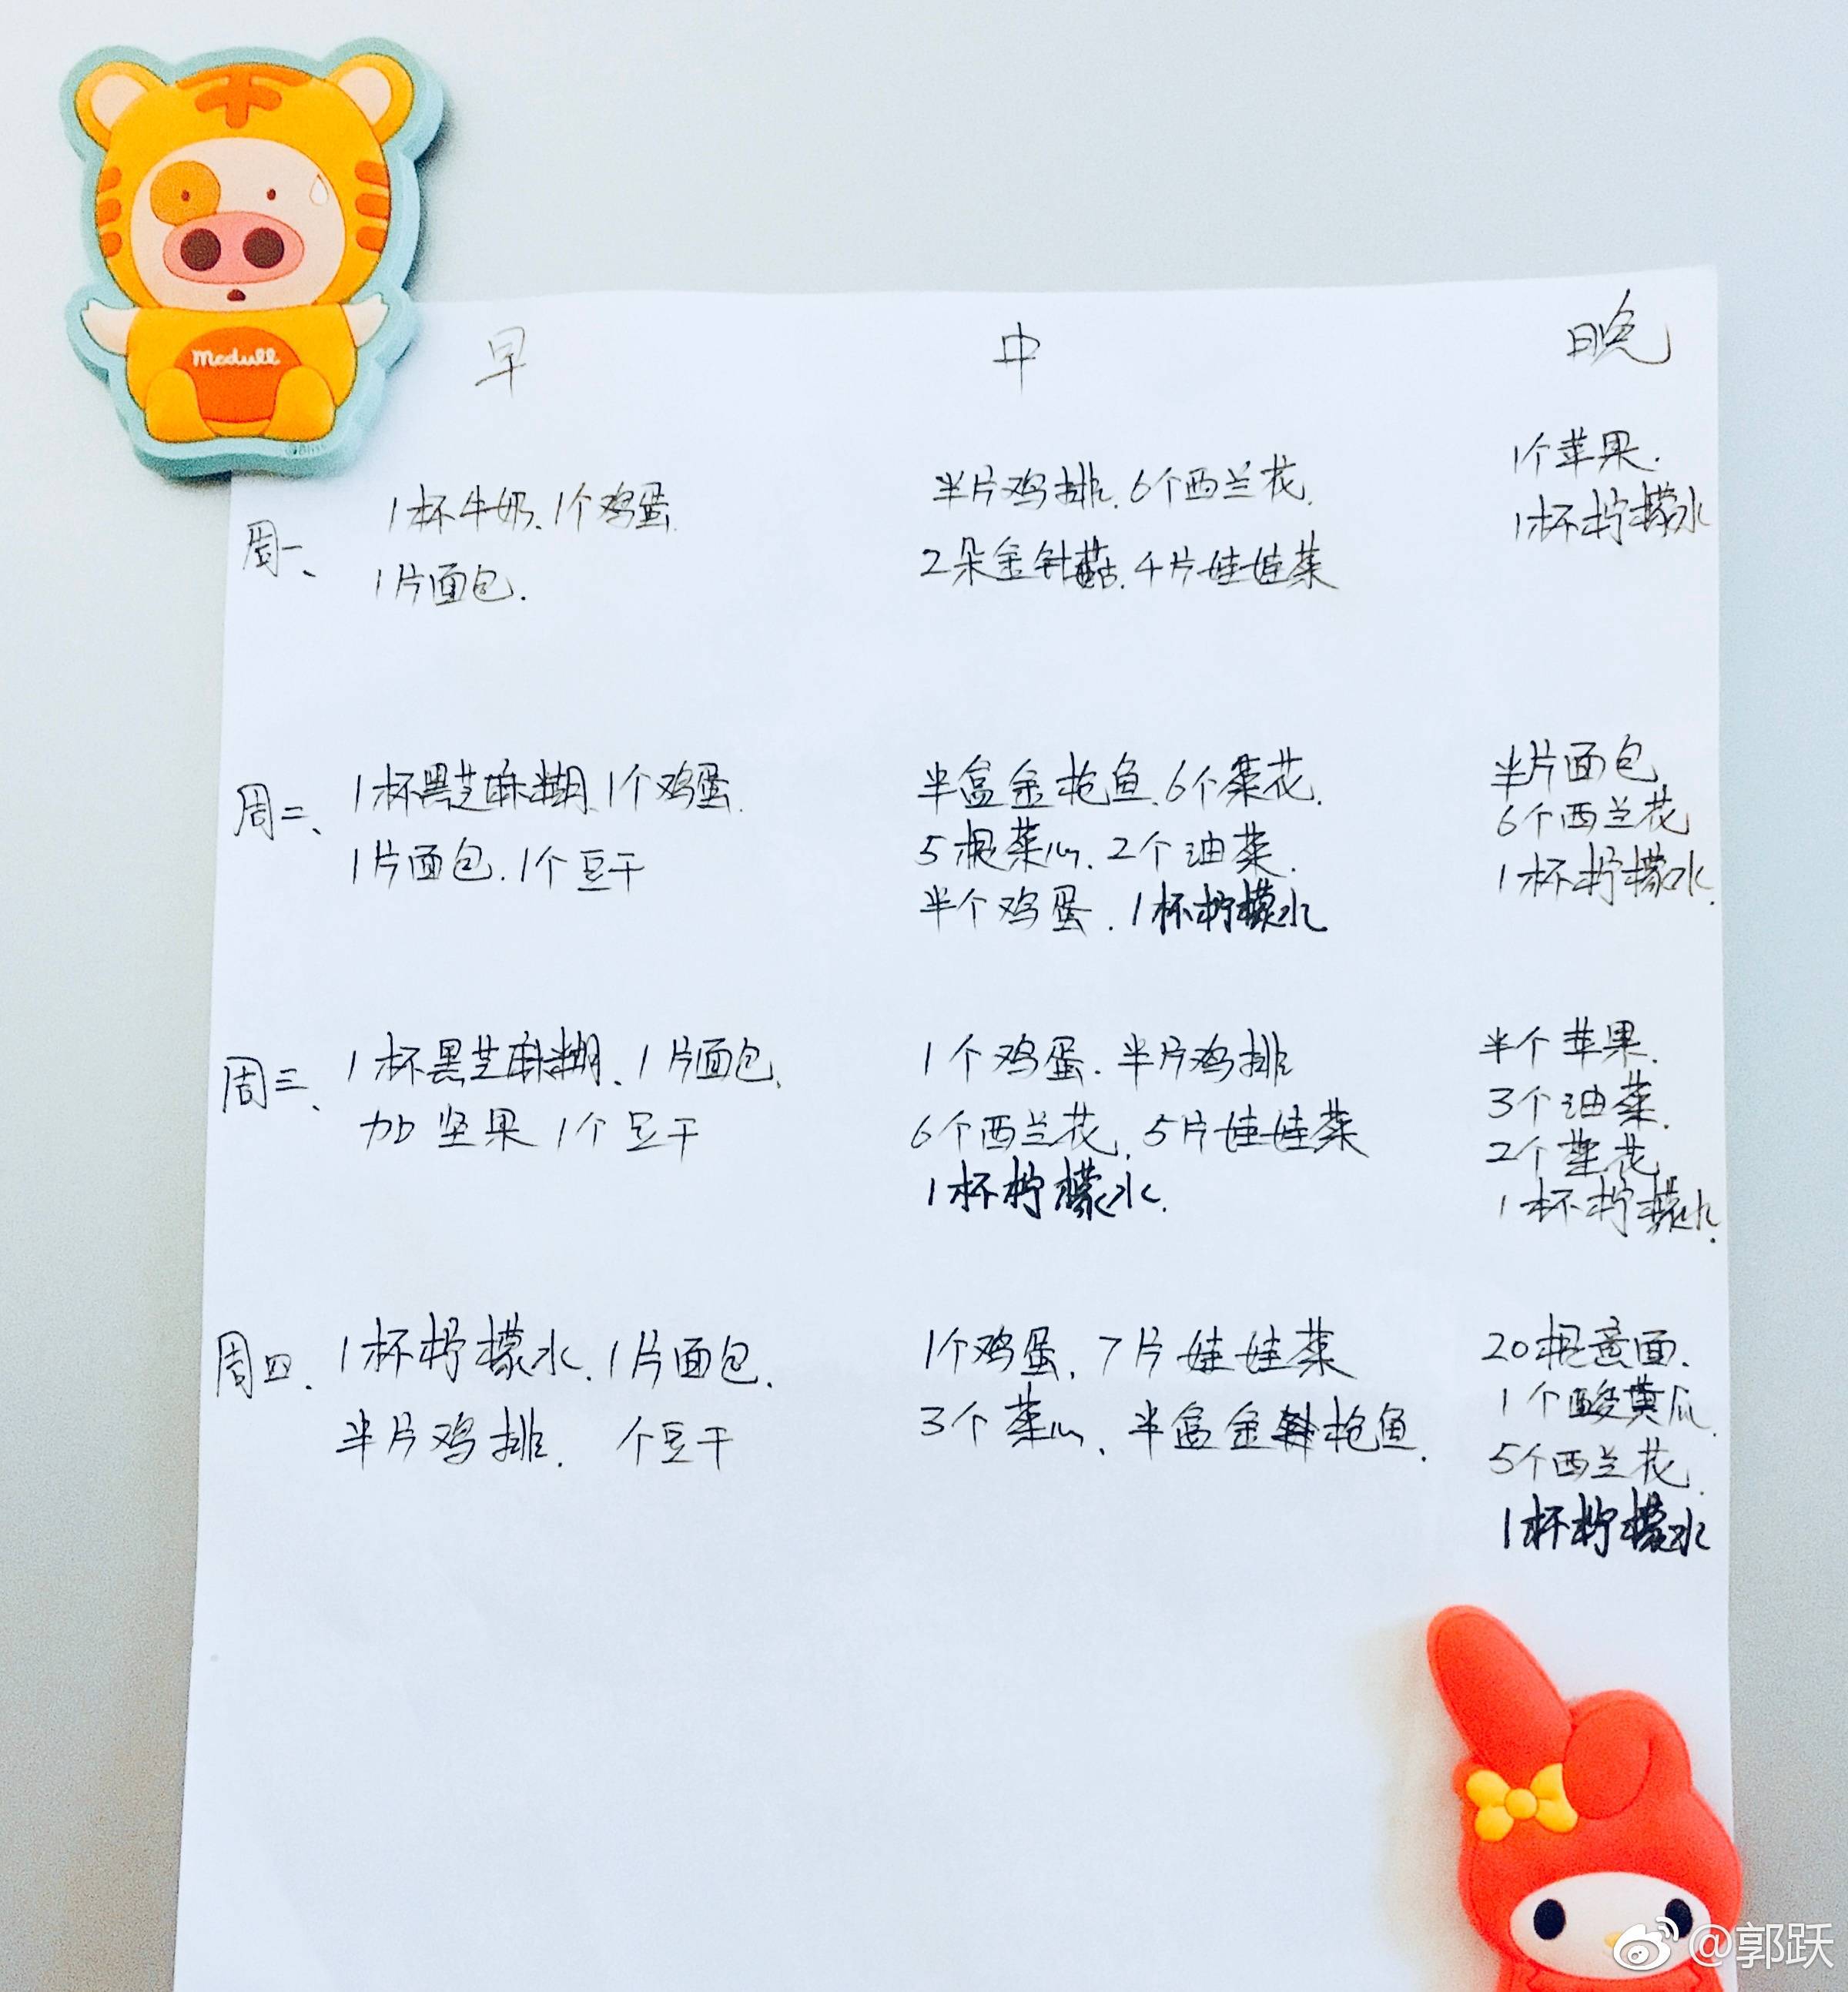 Mcdull
早 中 晚
周一、
1杯牛奶、1个鸡蛋.
1片面包.
半片鸡排、6个西兰花.
2朵金针菇、4片娃娃菜
1个苹果.
1杯柠檬水
周二、
1杯黑芝麻糊、1个鸡蛋.
1片面包、1个豆干
半盒金枪鱼、6个菜花.
5根菜心、2个油菜.
半个鸡蛋.1杯柠檬水
半片面包
6个西兰花
1杯柠檬水.
周三、
1杯黑芝麻糊、1片面包.
加坚果 1个豆干
1个鸡蛋.半片鸡排
6个西兰花、5片娃娃菜
1杯柠檬水.
半个苹果.
3个油菜.
2个菜花
1杯柠檬水.
周四.
1杯柠檬水.1片面包.
半片鸡排. 个豆干
1个鸡蛋、7片娃娃菜
3个菜心、半盒金枪鱼.
20根意面.
1个酸黄瓜.
5个西兰花.
1杯柠檬水
@郭跃